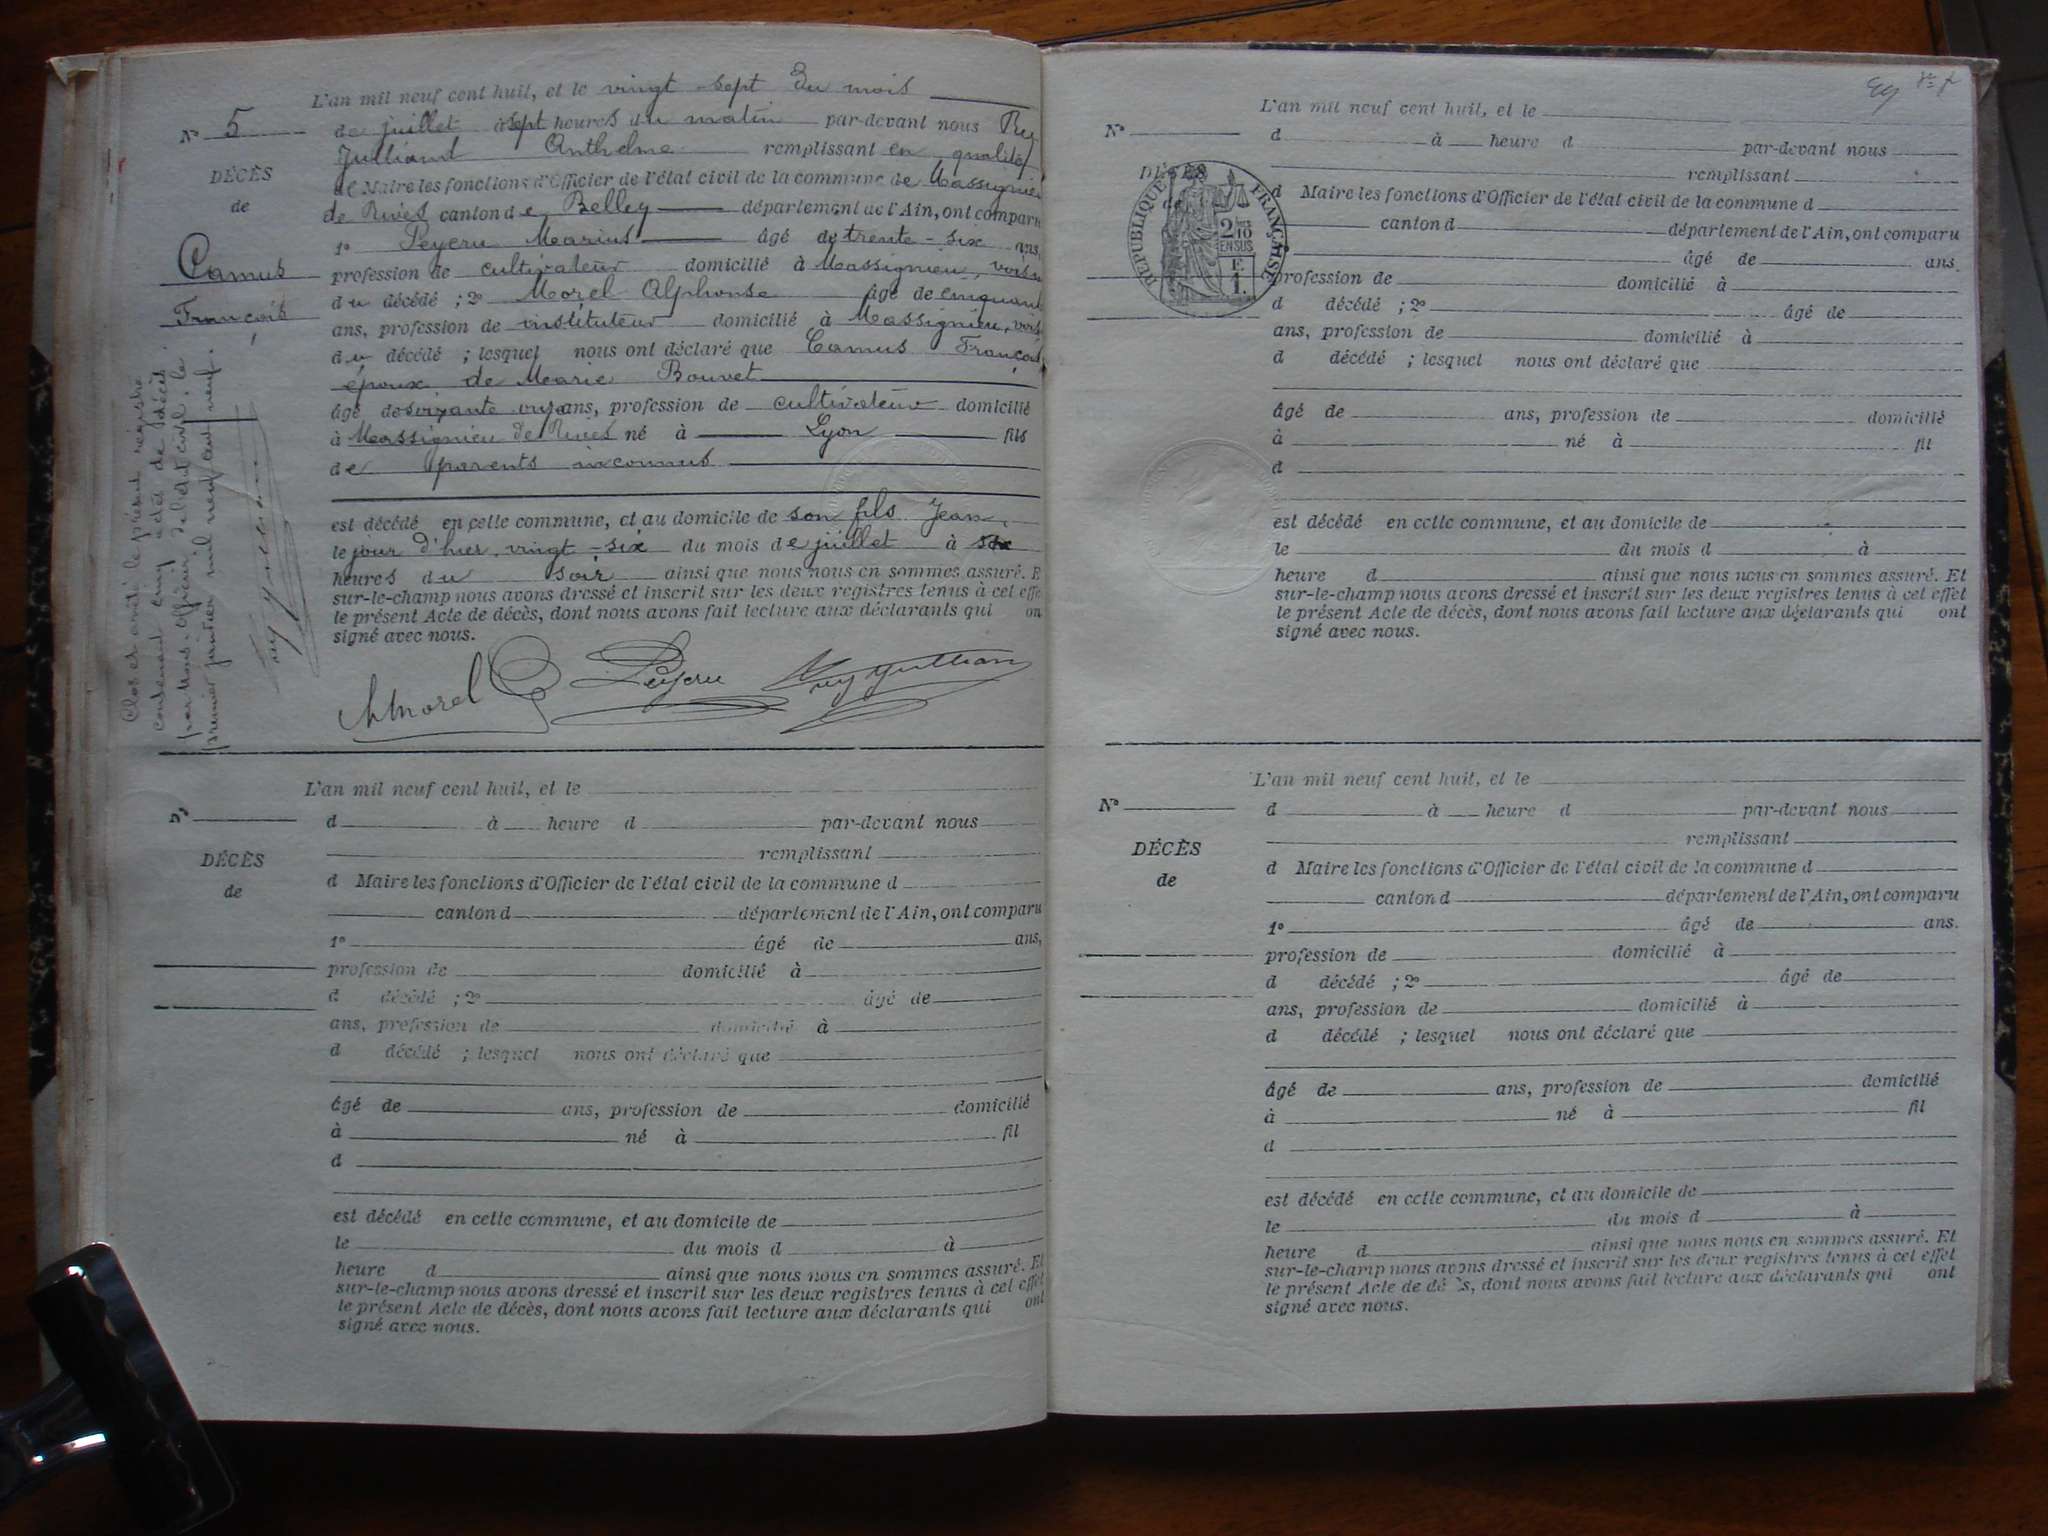 L'an mil neuf cent huit, et le vingt-sept du mois
N° 5
de juillet à sept heures du matin par-devant nous Ruy
Julliand Anthelme remplissant en qualité
DÉCÈS
de
de Maire les fonctions d'Officier de l'état civil de la commune de Massignieu
de Rives canton de Belley département de l'Ain, ont comparu
1° Peyeru Marius âgé de trente-six ans,
Camus
François
profession de cultivateur domicilié à Massignieu, voisin
du décédé ; 2° Morel Alphonse âgé de cinquante
ans, profession de instituteur domicilié à Massignieu, voisin
du décédé ; lesquel nous ont déclaré que Camus François
époux de Marie Bouvet
âgé de soixante onze ans, profession de cultivateur domicilié
à Massignieu de Rives né à Lyon fils
de parents inconnus
est décédé en cette commune, et au domicile de son fils Jean,
le jour d'hier, vingt-six du mois de juillet à six
heures du soir ainsi que nous nous en sommes assuré. E
sur-le-champ nous avons dressé et inscrit sur les deux registres tenus à cet effe
le présent Acte de décès, dont nous avons fait lecture aux déclarants qui on
signé avec nous.
AMorel Peyeru Ruy Julliand
Clos et arrêté le présent registre
contenant cinq actes de décès
par Nous, Officier de l'état civil, le
premier janvier mil neuf cent neuf.
L'an mil neuf cent huit, et le
N°
d à heure d par-devant nous
remplissant
DÉCÈS
de
d Maire les fonctions d'Officier de l'état civil de la commune d
canton d département de l'Ain, ont comparu
1° âgé de ans,
profession de domicilié à
d décédé ; 2° âgé de
ans, profession de domicilié à
d décédé ; lesquel nous ont déclaré que
âgé de ans, profession de domicilié
à né à fil
d
est décédé en cette commune, et au domicile de
le du mois d à
heure d ainsi que nous nous en sommes assuré. Et
sur-le-champ nous avons dressé et inscrit sur les deux registres tenus à cet effet
le présent Acte de décès, dont nous avons fait lecture aux déclarants qui ont
signé avec nous.
L'an mil neuf cent huit, et le
N°
d à heure d par-devant nous
remplissant
DÉCÈS
de
RÉPUBLIQUE FRANÇAISE
2/10
EN SUS
E
1.
d Maire les fonctions d'Officier de l'état civil de la commune d
canton d département de l'Ain, ont comparu
âgé de ans.
profession de domicilié à
d décédé ; 2° âgé de
ans, profession de domicilié à
d décédé ; lesquel nous ont déclaré que
âgé de ans, profession de domicilié
à né à fil
d
est décédé en cette commune, et au domicile de
le du mois d à
heure d ainsi que nous nous en sommes assuré. Et
sur-le-champ nous avons dressé et inscrit sur les deux registres tenus à cet effet
le présent Acte de décès, dont nous avons fait lecture aux déclarants qui ont
signé avec nous.
L'an mil neuf cent huit, et le
N°
d à heure d par-devant nous
remplissant
DÉCÈS
de
d Maire les fonctions d'Officier de l'état civil de la commune d
canton d département de l'Ain, ont comparu
1° âgé de ans.
profession de domicilié à
d décédé ; 2° âgé de
ans, profession de domicilié à
d décédé ; lesquel nous ont déclaré que
âgé de ans, profession de domicilié
à né à fil
d
est décédé en cette commune, et au domicile de
le du mois d à
heure d ainsi que nous nous en sommes assuré. Et
sur-le-champ nous avons dressé et inscrit sur les deux registres tenus à cet effet
le présent Acte de dé s, dont nous avons fait lecture aux déclarants qui ont
signé avec nous.